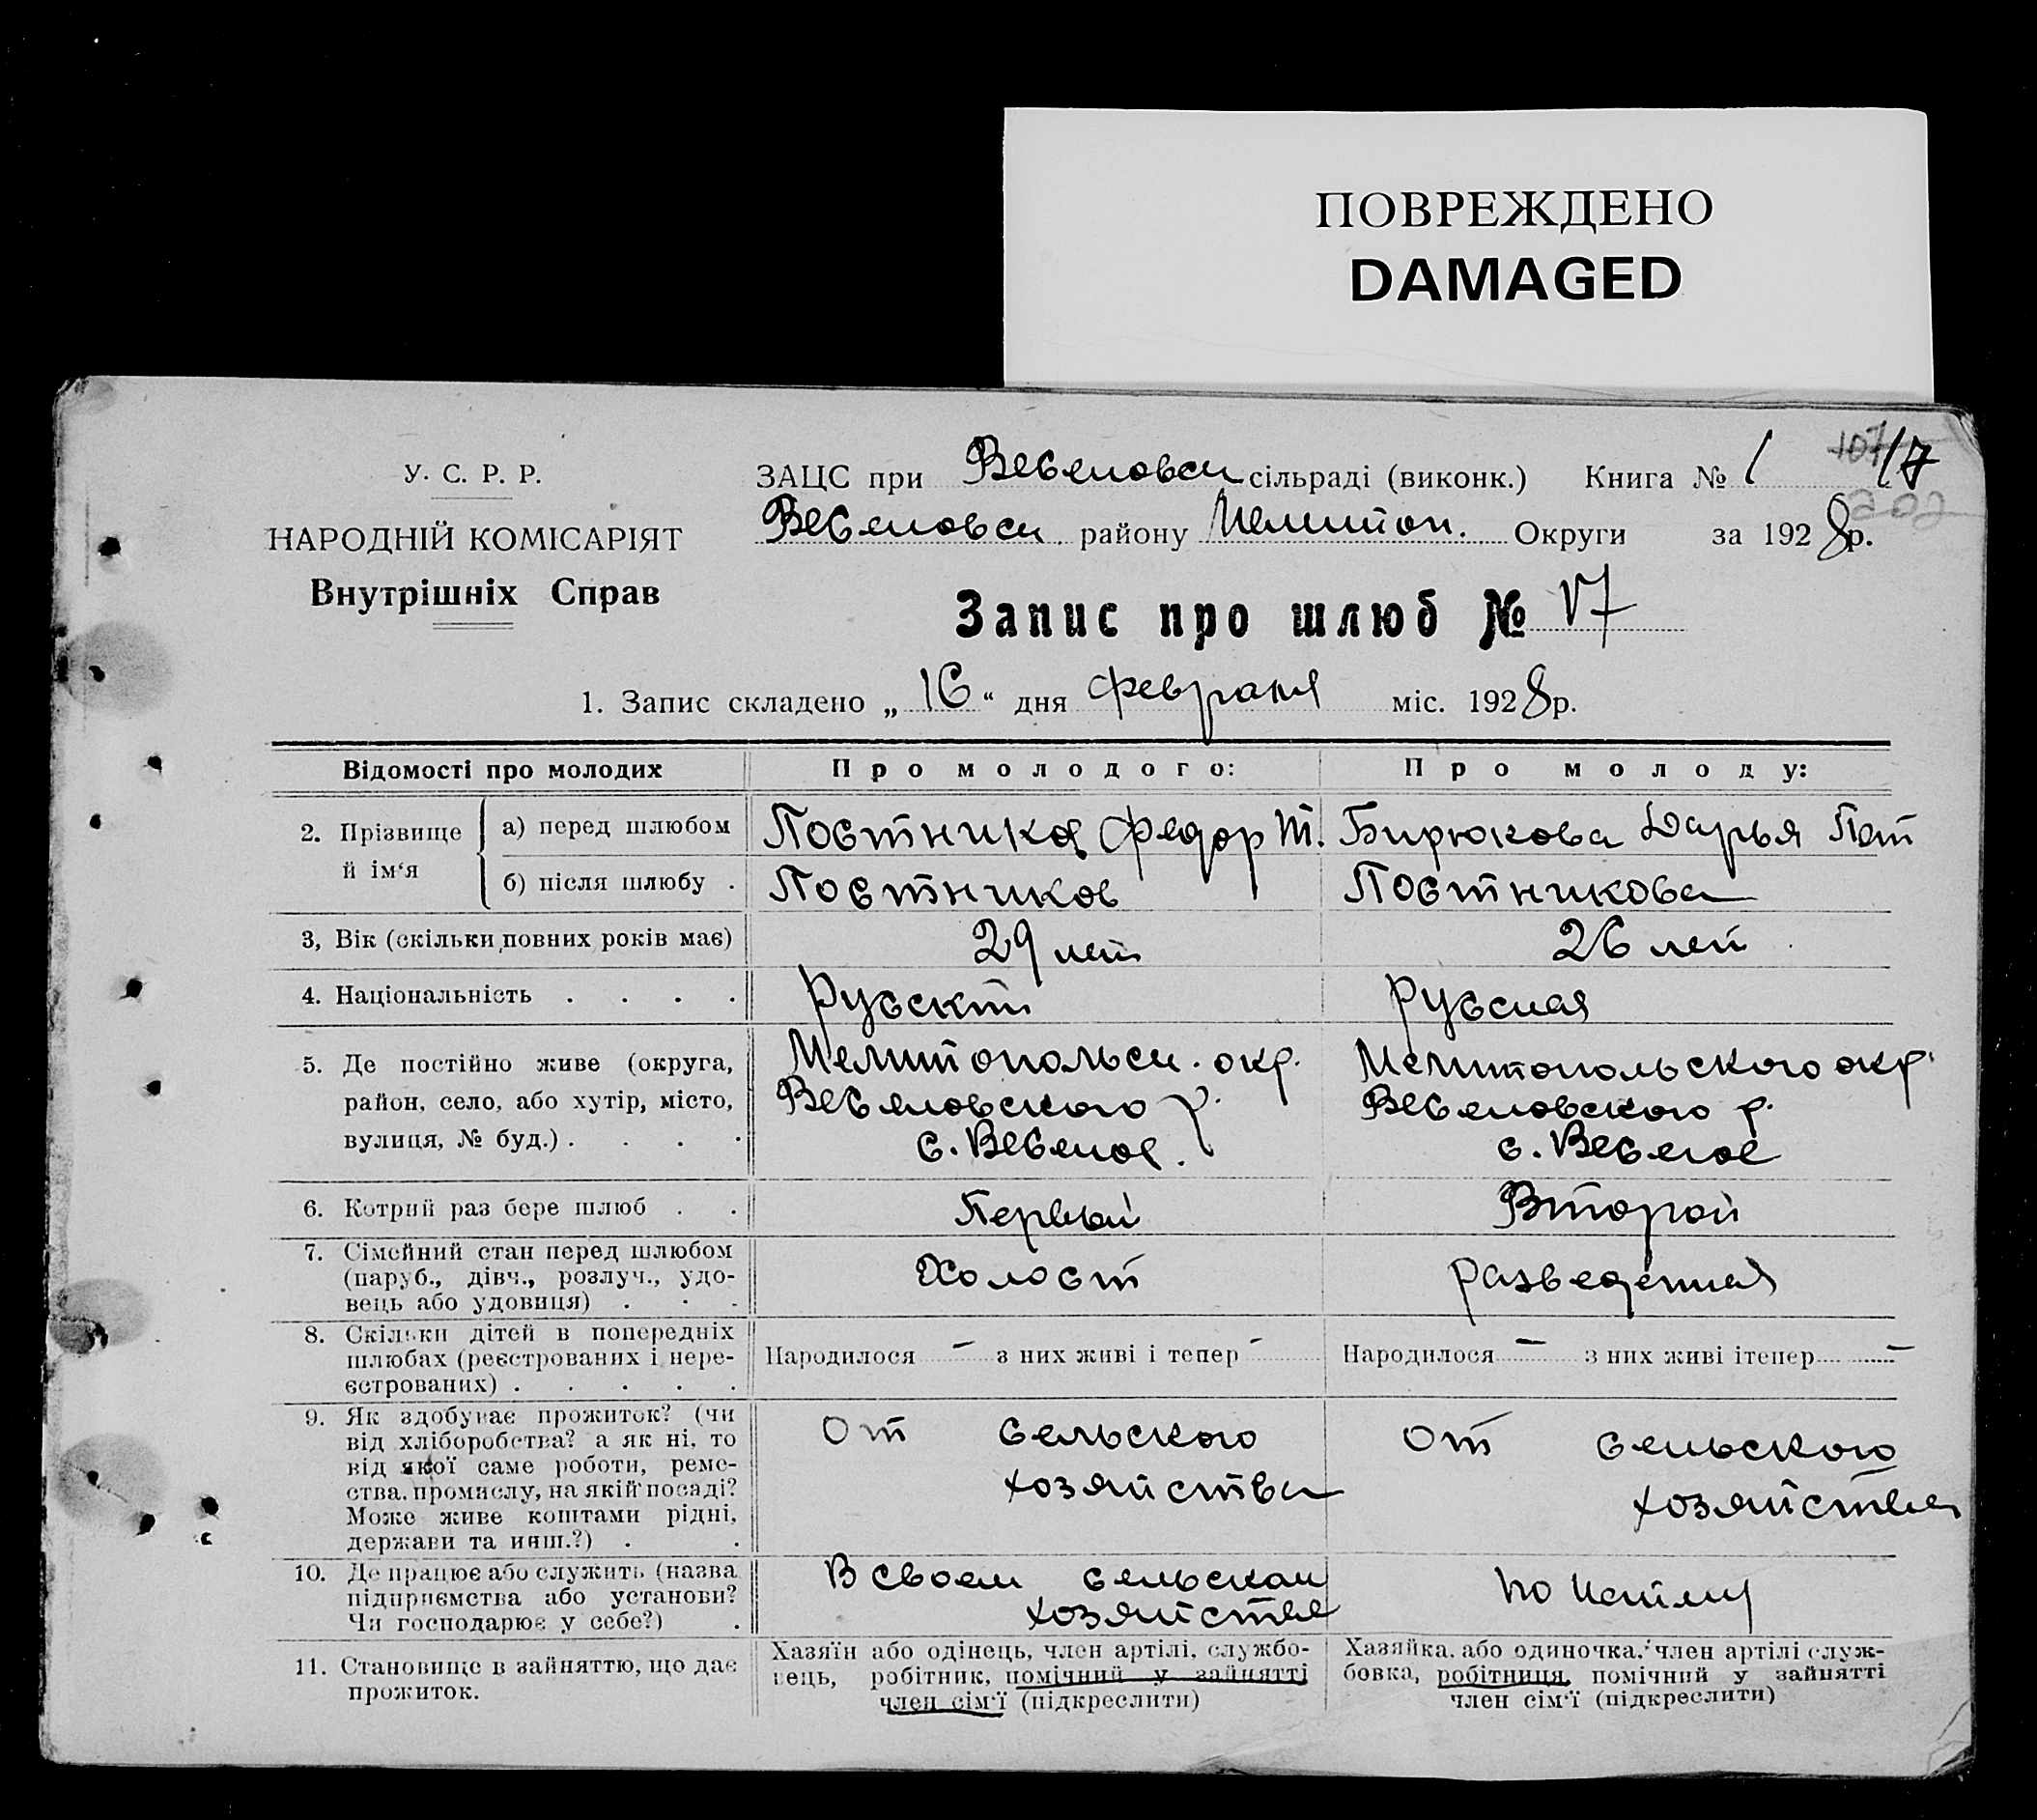 ПОВРЕЖДЕНО
DAMAGED
У. С. Р. Р.
НАРОДНІЙ КОМІСАРІЯТ
Внутрішніх Справ
ЗАЦС при Веселовск сільраді (виконк.) Книга № 1 17
Веселовск району Мелитоп. Округи за 1928 р.
Запис про шлюб № 17
1. Запис складено „16“ дня февраля міс. 1928 р.
Відомості про молодих
Про молодого:
Про молоду:
2. Прізвище й ім‘я
а) перед шлюбом
Постников Федор Т.
Бирюкова Дарья Пет
б) після шлюбу .
Постников
Постникова
3, Вік (скільки повних років має)
29 лет
26 лет
4. Національність . . . .
Русский
Русская
5. Де постійно живе (округа,
район, село, або хутір, місто,
вулиця, № буд.) . . . .
Мелитопольск. окр.
Веселовского р.
с. Веселое.
Мелитопольского окр.
Веселовского р.
с. Веселое
6. Котрий раз бере шлюб . .
Первый
Второй
7. Сімейний стан перед шлюбом
(паруб., дівч., розлуч., удо-
вець або удовиця) . . .
Холост
Разведенная
8. Скільки дітей в попередніх
шлюбах (реєстрованих і нере-
єстрованих) . . . . .
Народилося — з них живі і тепер —
Народилося — з них живі ітепер —
9. Як здобуває прожиток? (чи
від хліборобства? а як ні, то
від якої саме роботи, реме-
ства, промислу, на якій посаді?
Може живе коштами рідні,
держави та инш.?) . .
От сельского
хозяйства
От сельского
хозяйства
10. Де працює або служить (назва
підприємства або установи?
Чи господарює у себе?) .
В своем сельском
хозяйстве
по найму
11. Становище в зайняттю, що дає
прожиток.
Хазяїн або одінець, член артілі, службо-
вець, робітник, помічний у зайнятті
член сім‘ї (підкреслити)
Хазяйка, або одиночка, член артілі служ-
бовка, робітниця, помічний у зайнятті
член сім‘ї (підкреслити)